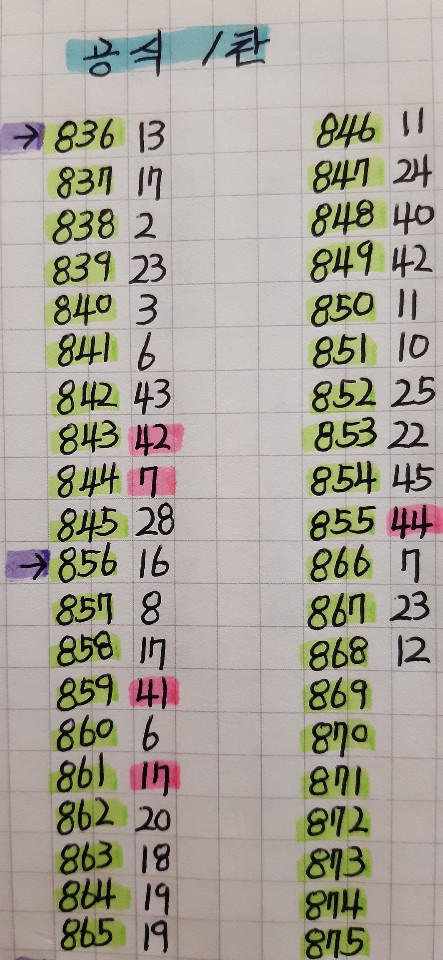 공식 1탄
→ 836 13
837 17
838 2
839 23
840 3
841 6
842 43
843 42
844 7
845 28
→ 856 16
857 8
858 17
859 41
860 6
861 17
862 20
863 18
864 19
865 19
846 11
847 24
848 40
849 42
850 11
851 10
852 25
853 22
854 45
855 44
866 7
867 23
868 12
869
870
871
872
873
874
875